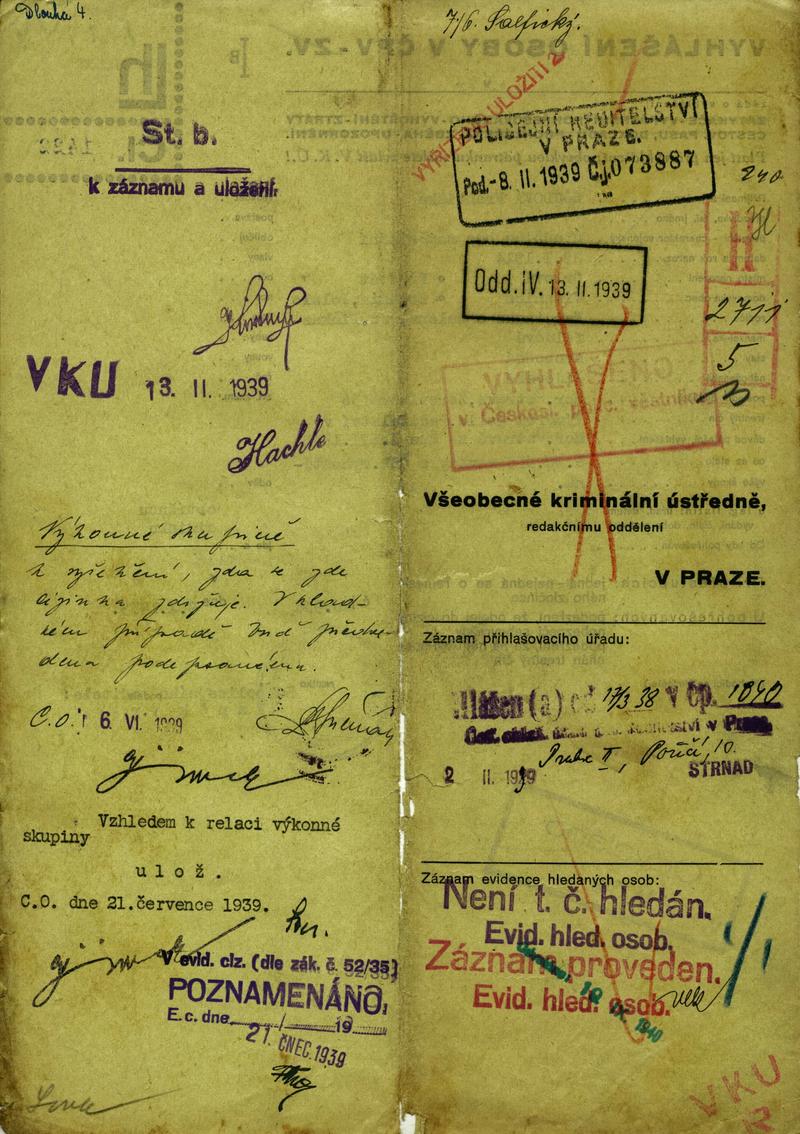 Dlouhá 4.
St. b.
k záznamu a uložení.
VKU 13. II. 1939
Hachle
Výkonné skupině
k vyšetření, zda se zde
cizinka zdržuje. V klad-
ném případě buď předve-
dena
C.O. 6. VI. 1939
Vzhledem k relaci výkonné
skupiny
ulož.
C.O. dne 21.července 1939.
V evid. ciz. (dle zák. č. 52/35)
POZNAMENÁNO.
E. c. dne 19
21. ČNEC. 1939
7/6. Salfický.
VYŘÍZENO ULOŽITI
POLICEJNÍ ŘEDITELSTVÍ
V PRAZE.
Pod.-8. II. 1939 Č.j. 073887
240
H
Odd. IV. 13. II. 1939
2711
5
VYHLÁŠENO
v Českosl. pátr. věstníku
Všeobecné kriminální ústředně,
redakčnímu oddělení
V PRAZE.
Záznam přihlašovacího úřadu:
Hlášen(a) od 17/3 38 v čp. 1040
v Praze
Praha II, Poříč, 10.
2 II. 1939 STRNAD
Záznam evidence hledaných osob:
Není t. č. hledán.
Evid. hled. osob.
Záznam proveden.
Evid. hled. osob.
VKU